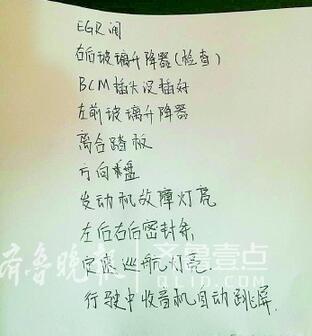 EGR阀
右后玻璃升降器(检查)
BCM插头没插好
左前玻璃升降器
离合踏板
方向盘
发动机故障灯亮
左后右后密封条
定速巡航灯亮
行驶中收音机自动跳屏
齐鲁晚报
齐鲁壹点